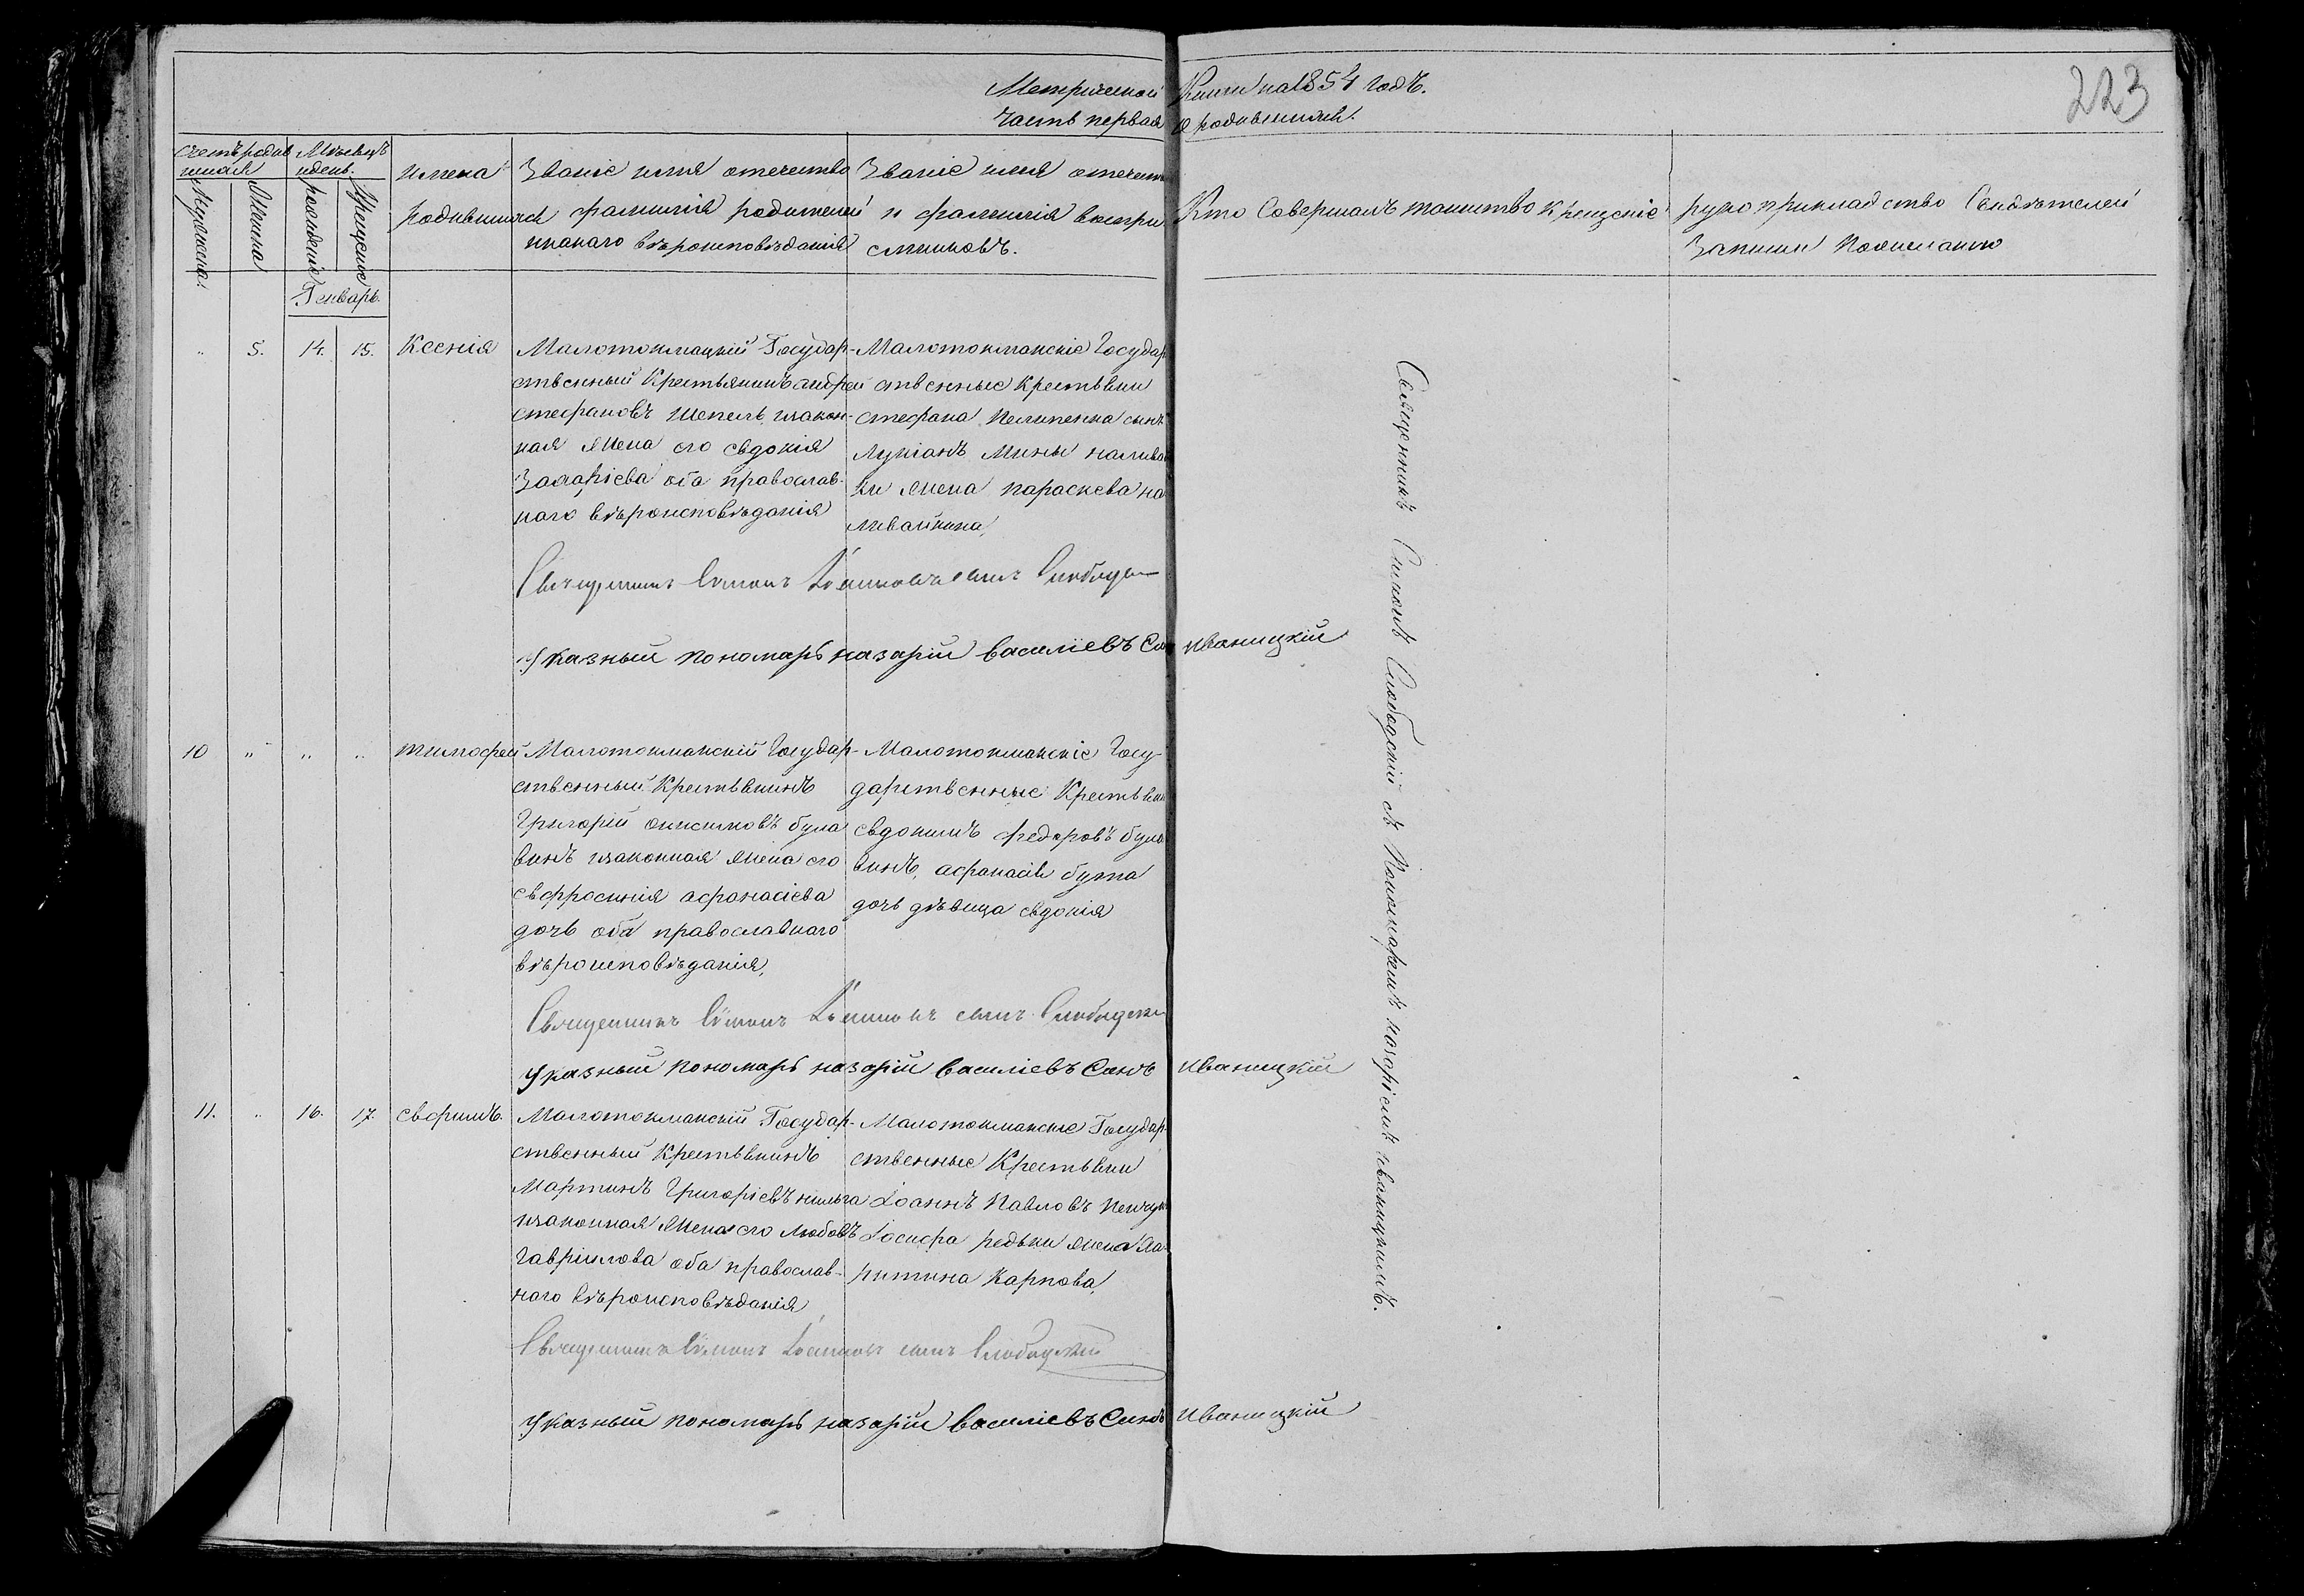 223
Метрической Книги на 1854 годъ.
Часть первая о родившихся.
Счетъ родив
шихся
Мужеска.
Женска
Мѣсяцъ
и день.
рожденія
крещенія
Имена
родившихся
Званіе имя отечество
фамилія родителей и
какаго вѣроисповѣданія
Званіе имя отечест
и фамилія воспри
емниковъ.
Кто Совершалъ таинство крещеніе
рукоприкладство Свидѣтелей
Записи по желанію
Генварь.
„ 5. 14. 15. Ксенія
Малотокмацкій Государ-
ственный Крестьянинъ андрей
стефановъ Шепель, изакон-
ная Жена его евдокія
Захаріева оба православ-
наго вѣроисповѣданія
Малотокманскіе Государ
ственные Крестьяни
стефана Пелипенка сынъ
Лукіанъ Мины налива
ки Жена параскева на
ливайкина,
Священникъ Симонъ Іоанновъ сынъ Слободск
Указный пономарь назарій василіевъ Сын Иваницкій
10 „ „ „ тимофей
Малотокманскій Государ-
ственный Крестьянинъ
Григорій онисимовъ була
винъ изаконная Жена его
евфросинія афонасіева
дочь оба православнаго
вѣроисповѣданія,
Малотокманскіе Госу-
дарственные Крестьяни
евдокимъ федоровъ була
винъ, афонасія бута
дочь дѣвица евдокія
Священникъ Симонъ Іоанновъ сынъ Слободски
Указный пономарь назарій василіевъ Сынъ Иваницкій
11. „ 16. 17. ефимъ.
Малотокманскій Государ-
ственный Крестьянинъ
Мартинъ Григоріевъ
изаконная Жена его Любовъ
Гавріилова оба православ-
наго вѣроисповѣданія
Малотокманскіе Государ-
ственные Крестьяни
Іоаннъ Павловъ
Іосифа редьки Жена Ха-
ритина Карпова,
Священникъ Симонъ Іоанновъ сынъ Слободскій
Указный пономарь назарій василіевъ Сынъ Иваницкій
Священникъ Симонъ Слободскій съ Пономаремъ назаріемъ иваницкимъ.